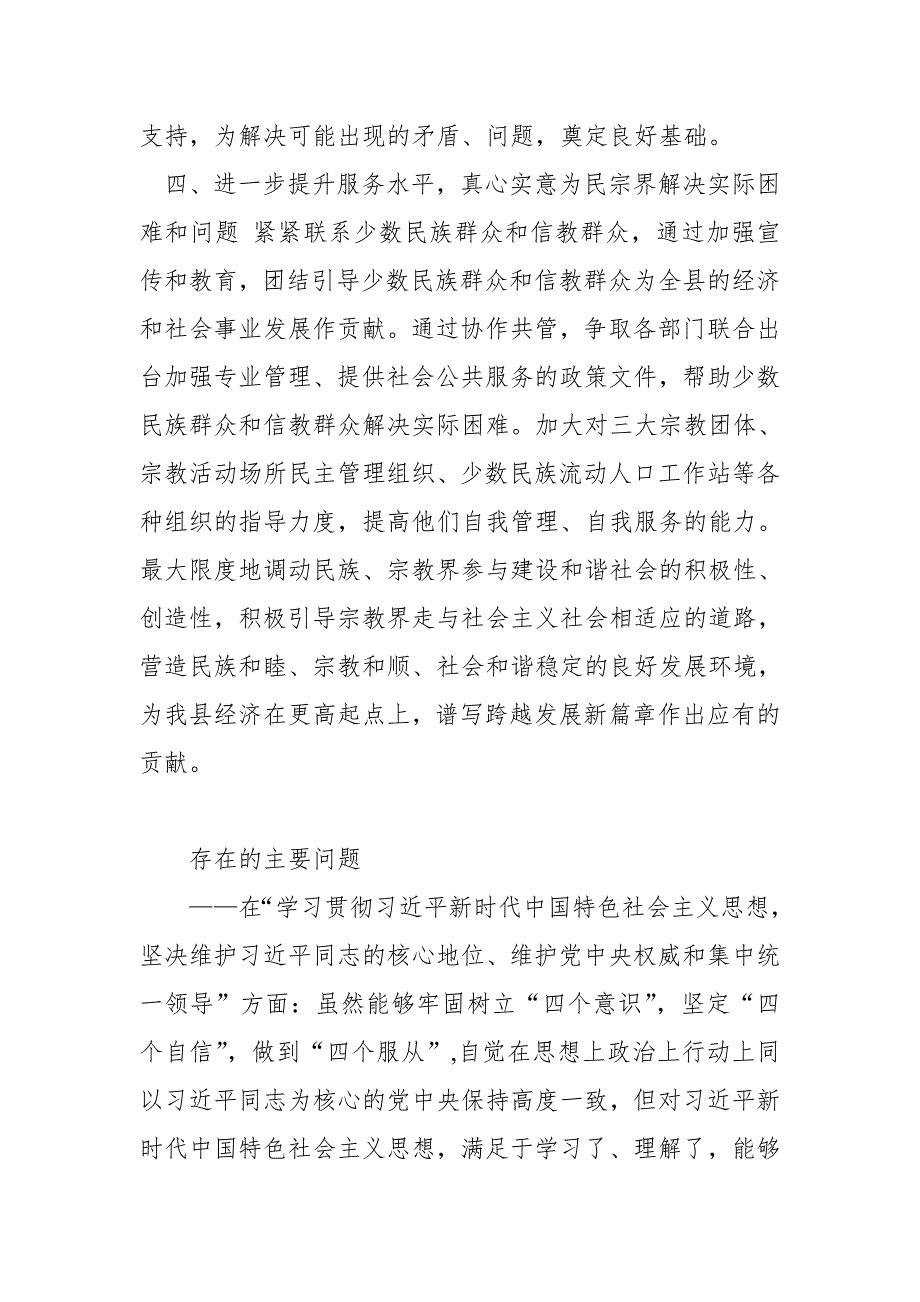 支持，为解决可能出现的矛盾、问题，奠定良好基础。
四、进一步提升服务水平，真心实意为民宗界解决实际困
难和问题 紧紧联系少数民族群众和信教群众，通过加强宣
传和教育，团结引导少数民族群众和信教群众为全县的经济
和社会事业发展作贡献。通过协作共管，争取各部门联合出
台加强专业管理、提供社会公共服务的政策文件，帮助少数
民族群众和信教群众解决实际困难。加大对三大宗教团体、
宗教活动场所民主管理组织、少数民族流动人口工作站等各
种组织的指导力度，提高他们自我管理、自我服务的能力。
最大限度地调动民族、宗教界参与建设和谐社会的积极性、
创造性，积极引导宗教界走与社会主义社会相适应的道路，
营造民族和睦、宗教和顺、社会和谐稳定的良好发展环境，
为我县经济在更高起点上，谱写跨越发展新篇章作出应有的
贡献。
存在的主要问题
——在“学习贯彻习近平新时代中国特色社会主义思想，
坚决维护习近平同志的核心地位、维护党中央权威和集中统
一领导”方面：虽然能够牢固树立“四个意识”，坚定“四
个自信”，做到“四个服从”,自觉在思想上政治上行动上同
以习近平同志为核心的党中央保持高度一致，但对习近平新
时代中国特色社会主义思想，满足于学习了、理解了，能够